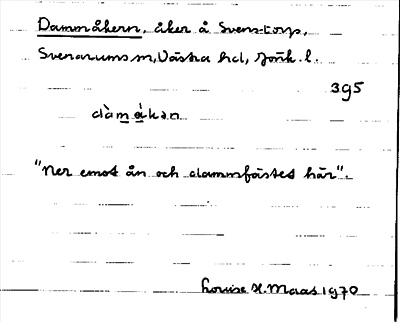 Dammåkern, åker å Svenstorp,
Svenarums sn, Västra hd, Jönk. l.
395
dàmåkan
"Ner emot ån och dammfästet här".
Louise H. Maas 1970